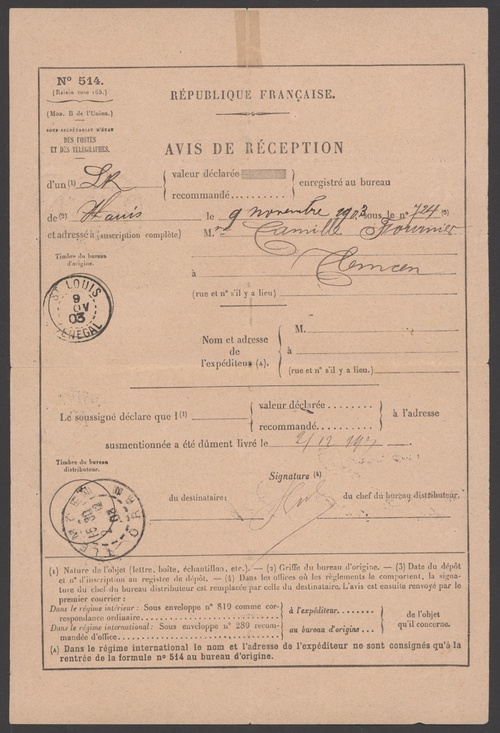 Nº 514.
(Balais rose 165.)
(Mon. B de l'Union.)
SOUS-SECRÉTARIAT D'ÉTAT
DES POSTES
ET DES TÉLÉGRAPHES.
RÉPUBLIQUE FRANÇAISE.
AVIS DE RÉCEPTION
d'un (1) LR valeur déclarée recommandé......... enregistré au bureau
de (2) St Louis le 9 novembre 1903 sous le nº 724 (3)
et adressé à (suscription complète) M. Camille Fournier
à Tlemcen
(rue et nº s'il y a lieu)
Timbre du bureau
d'origine.
ST LOUIS
9
NOV
03
SENEGAL
Nom et adresse
de
l'expéditeur (A).
M.
à
(rue et nº s'il y a lieu.)
Le soussigné déclare que l (1) valeur déclarée........ recommandé......... à l'adresse
susmentionnée a été dûment livré le 2/12 190
Timbre du bureau
distributeur.
Signature (4)
du destinataire: du chef du bureau distributeur,
TLEMCEN
ORAN
03
(1) Nature de l'objet (lettre, boîte, échantillon, etc.). — (2) Griffe du bureau d'origine. — (3) Date du dépôt
et nº d'inscription au registre de dépôt. — (4) Dans les offices où les règlements le comportent, la signa-
ture du chef du bureau distributeur est remplacée par celle du destinataire. L'avis est ensuite renvoyé par le
premier courrier:
Dans le régime intérieur: Sous enveloppe nº 819 comme cor-
respondance ordinaire.
Dans le régime international: Sous enveloppe nº 289 recom-
mandée d'office.
à l'expéditeur.
au bureau d'origine...
de l'objet
qu'il concerne.
(A) Dans le régime international le nom et l'adresse de l'expéditeur ne sont consignés qu'à la
rentrée de la formule nº 514 au bureau d'origine.